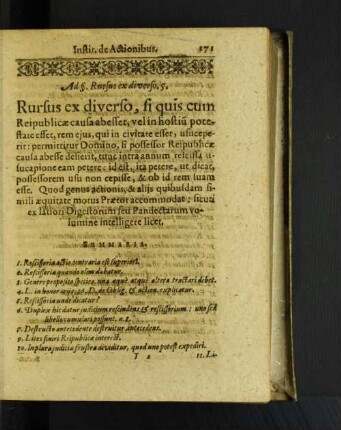 Instit. de Actionibus. 171
Ad §. Rursus ex diverso, 5.
Rursus ex diverso, si quis cum
Reipublicæ causa abesset, vel in hostiũ pote-
state esset, rem ejus, qui in civitate esset, usuceperit:
permittitur Domino, si possessor Reipublicæ
causa abesse desierit, tunc intra annum rescissa u-
sucapione eam petere: id est, ita petere, ut dicat,
possessorem usu non cepisse, & ob id rem suam
esse. Quod genus actionis, & alijs quibusdam si-
mili æquitate motus Prætor accommodat: sicuti
ex latiori Digestorum seu Pandectarum vo-
lumine intelligere licet.
Summaria.
1. Rescissoria actio contraria est superiori.
2. Rescissoria quando olim dabatur.
3. Genere proposito species una æque atque altera tractari debet.
4. L. in honorarijs, 35. D. de Oblig. & action. explicatur.
5. Rescissoria unde dicatur?
6. Duplex hic datur judicium rescindens & rescissorium: uno
libello cumulari possunt. n. 8.
7. Destructo antecedente destruitur
9. Lites finiri Reipublicæ interest.
10. In plura judicia frustra dividitur, quod uno potest expediri.
T 2 11. Li-